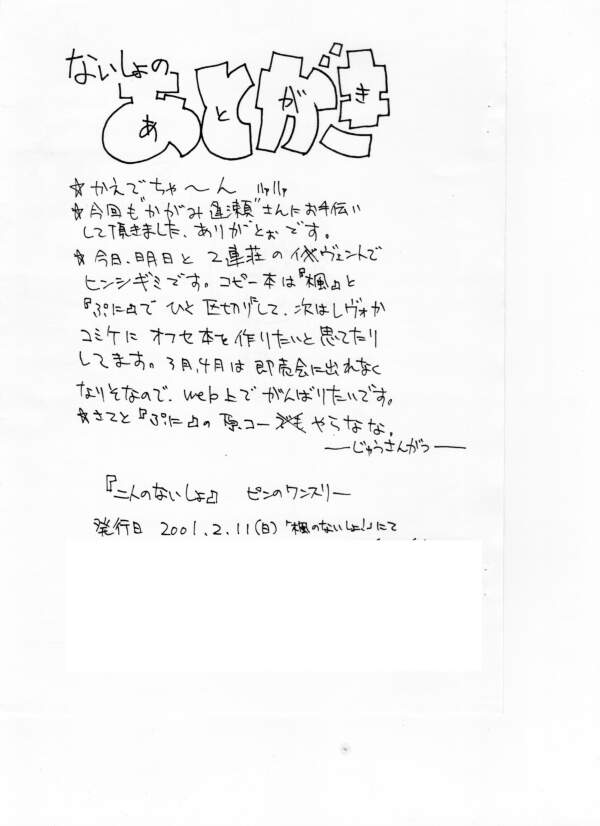 ないしょの
あとがき
☆かえでちゃ〜ん ハァハァ
☆今回も"かがみ逢瀬"さんにお手伝い
して頂きました、ありがとぉです。
☆今日、明日と2連荘のイヴェントで
ヒンシギミです。コピー本は『楓』と
『ぷに』でひと区切りして、次はレヴォか
コミケにオフセ本を作りたいと思てたり
してます。3月、4月は即売会に出れなく
なりそなので、web上でがんばりたいです。
☆さてと『ぷに』の原コーもやらなな。
──じゅうさんがつ──
『二人のないしょ』 ピンのワンスリー
発行日 2001.2.11(日)「楓のないしょ!」にて